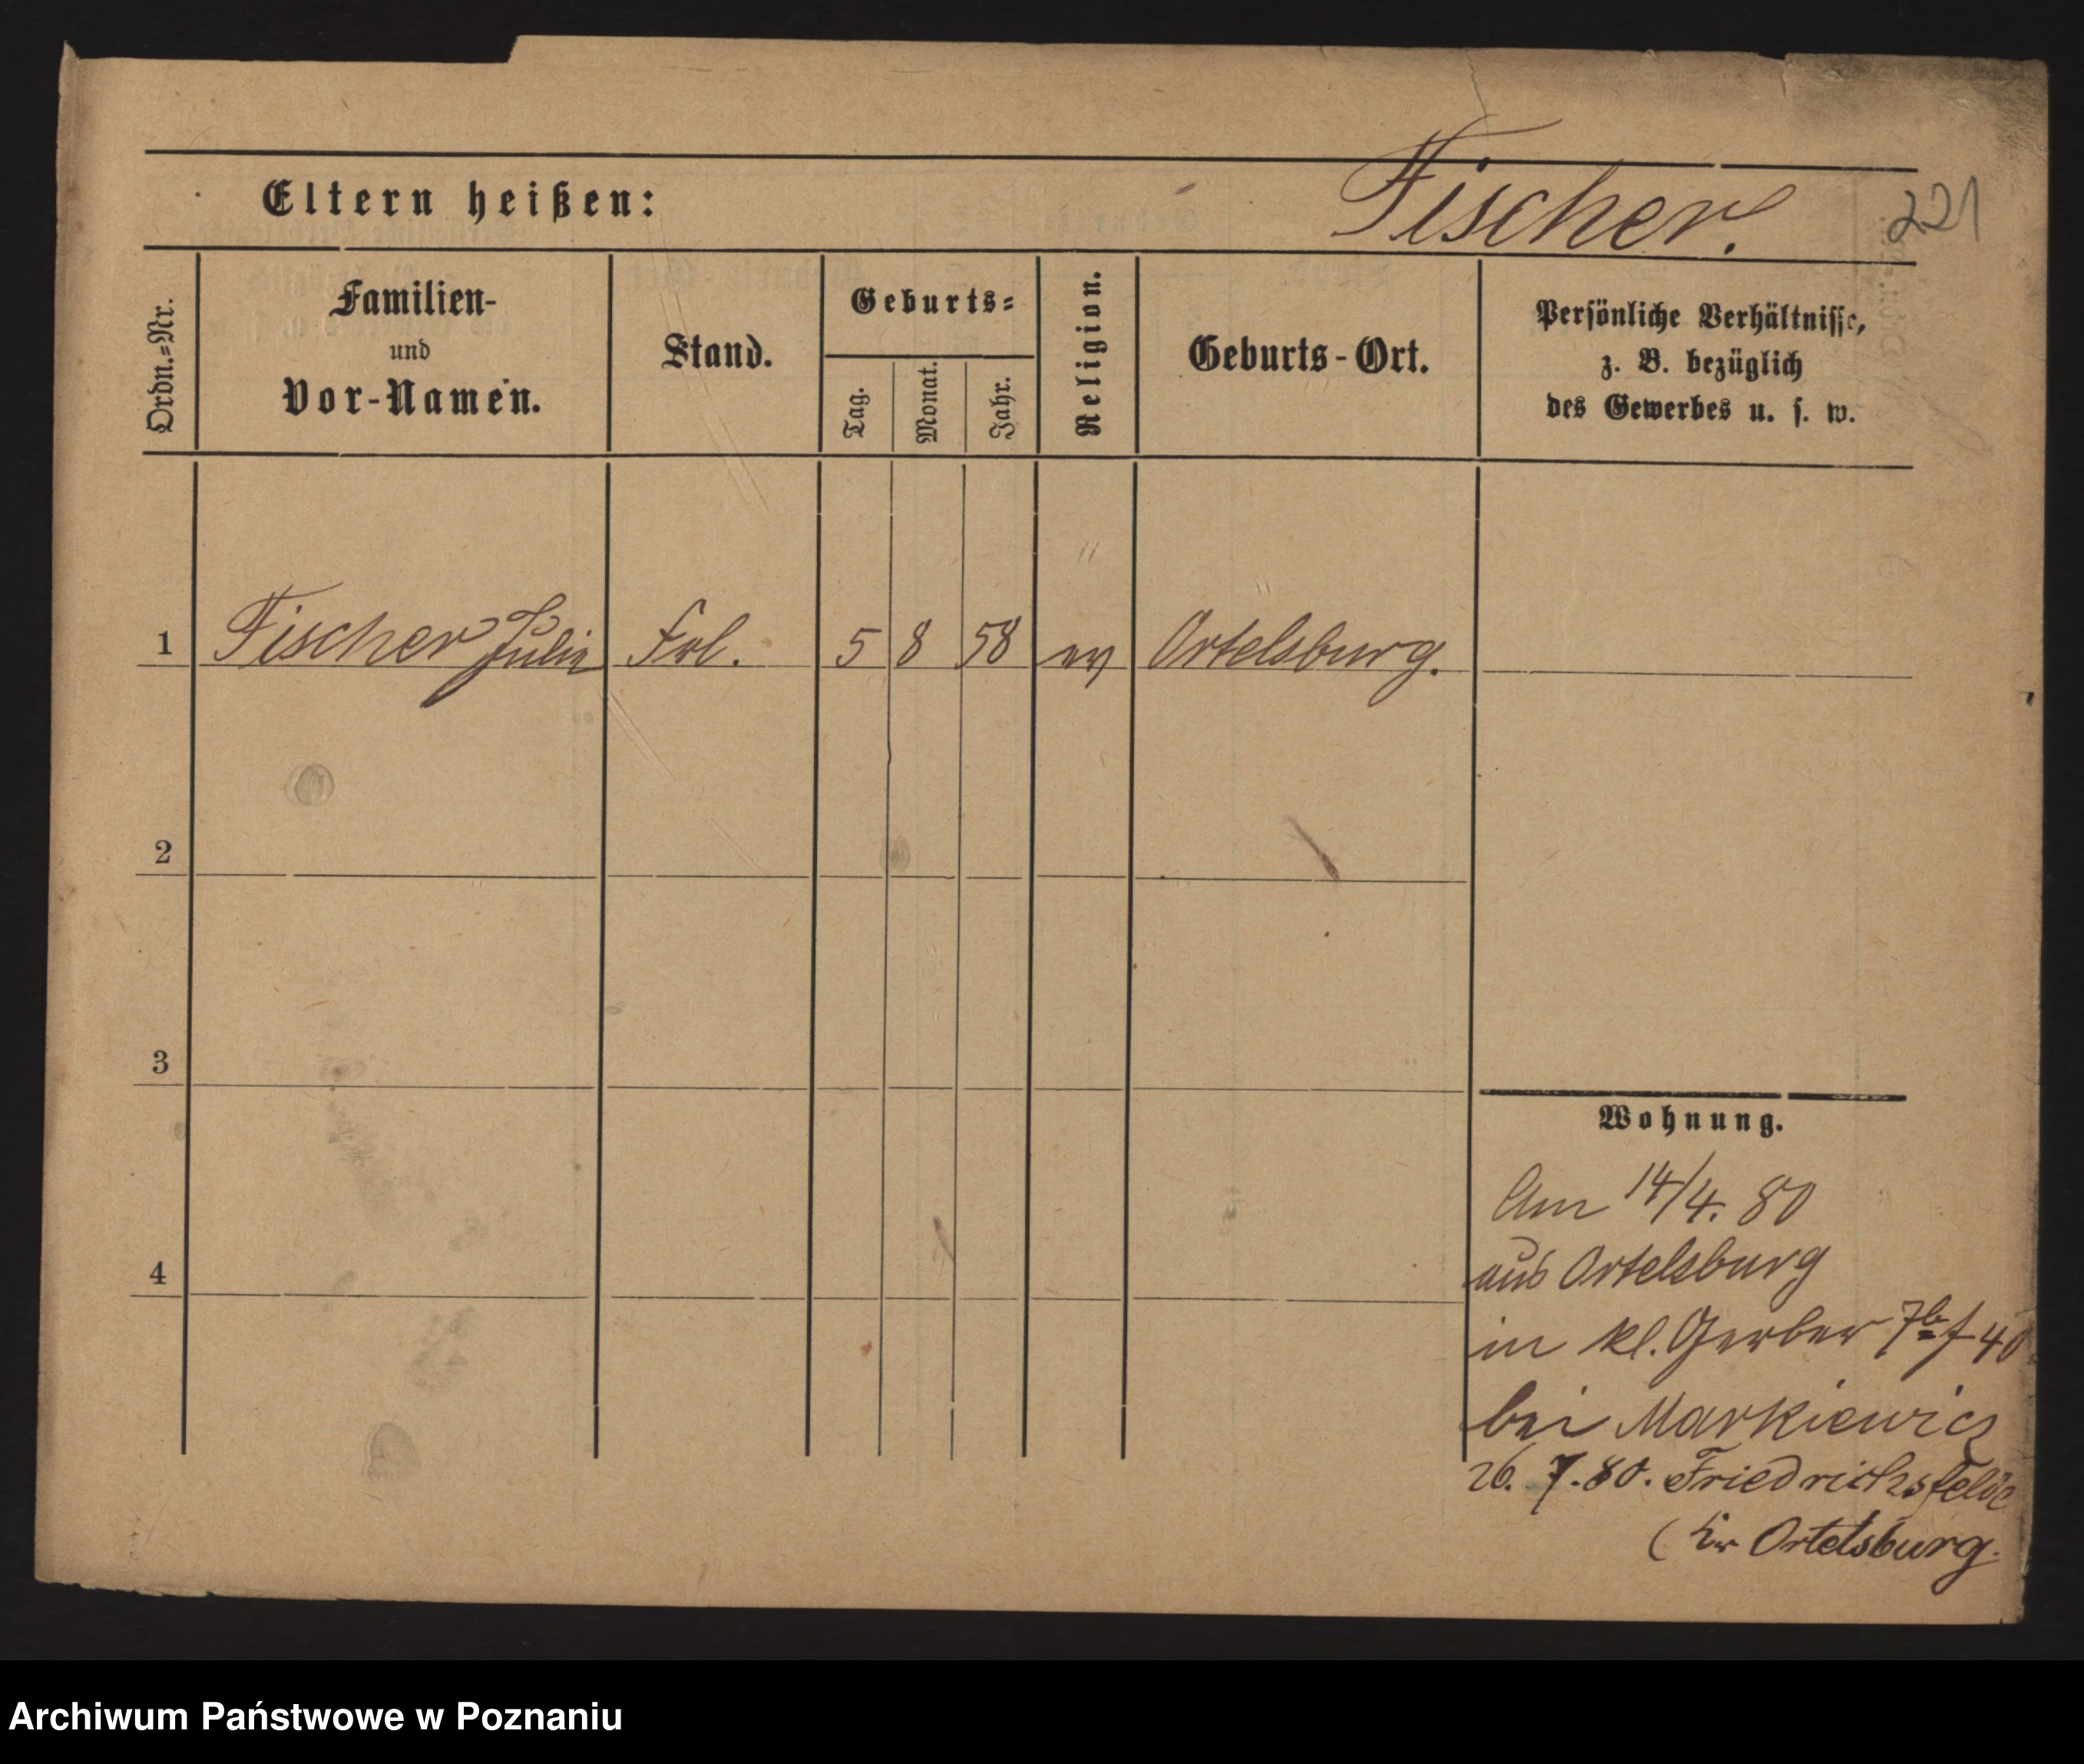 Fischer. 221
Eltern heißen:
Ordn.=Nr.
Familien-
und
Vor-Namen.
Stand.
Geburts=
Tag.
Monat.
Jahr.
Religion.
Geburts-Ort.
Persönliche Verhältnisse,
z. B. bezüglich
des Gewerbes u. s. w.
1 Fischer Julie Frl. 5 8 58 ev Ortelsburg.
2
3
4
Wohnung.
Am 14/4. 80
aus Ortelsburg
in kl. Gerber 40
bei Markiewicz
26. 7. 80. Friedrichsfelde
( Ortelsburg.
Archiwum Państwowe w Poznaniu